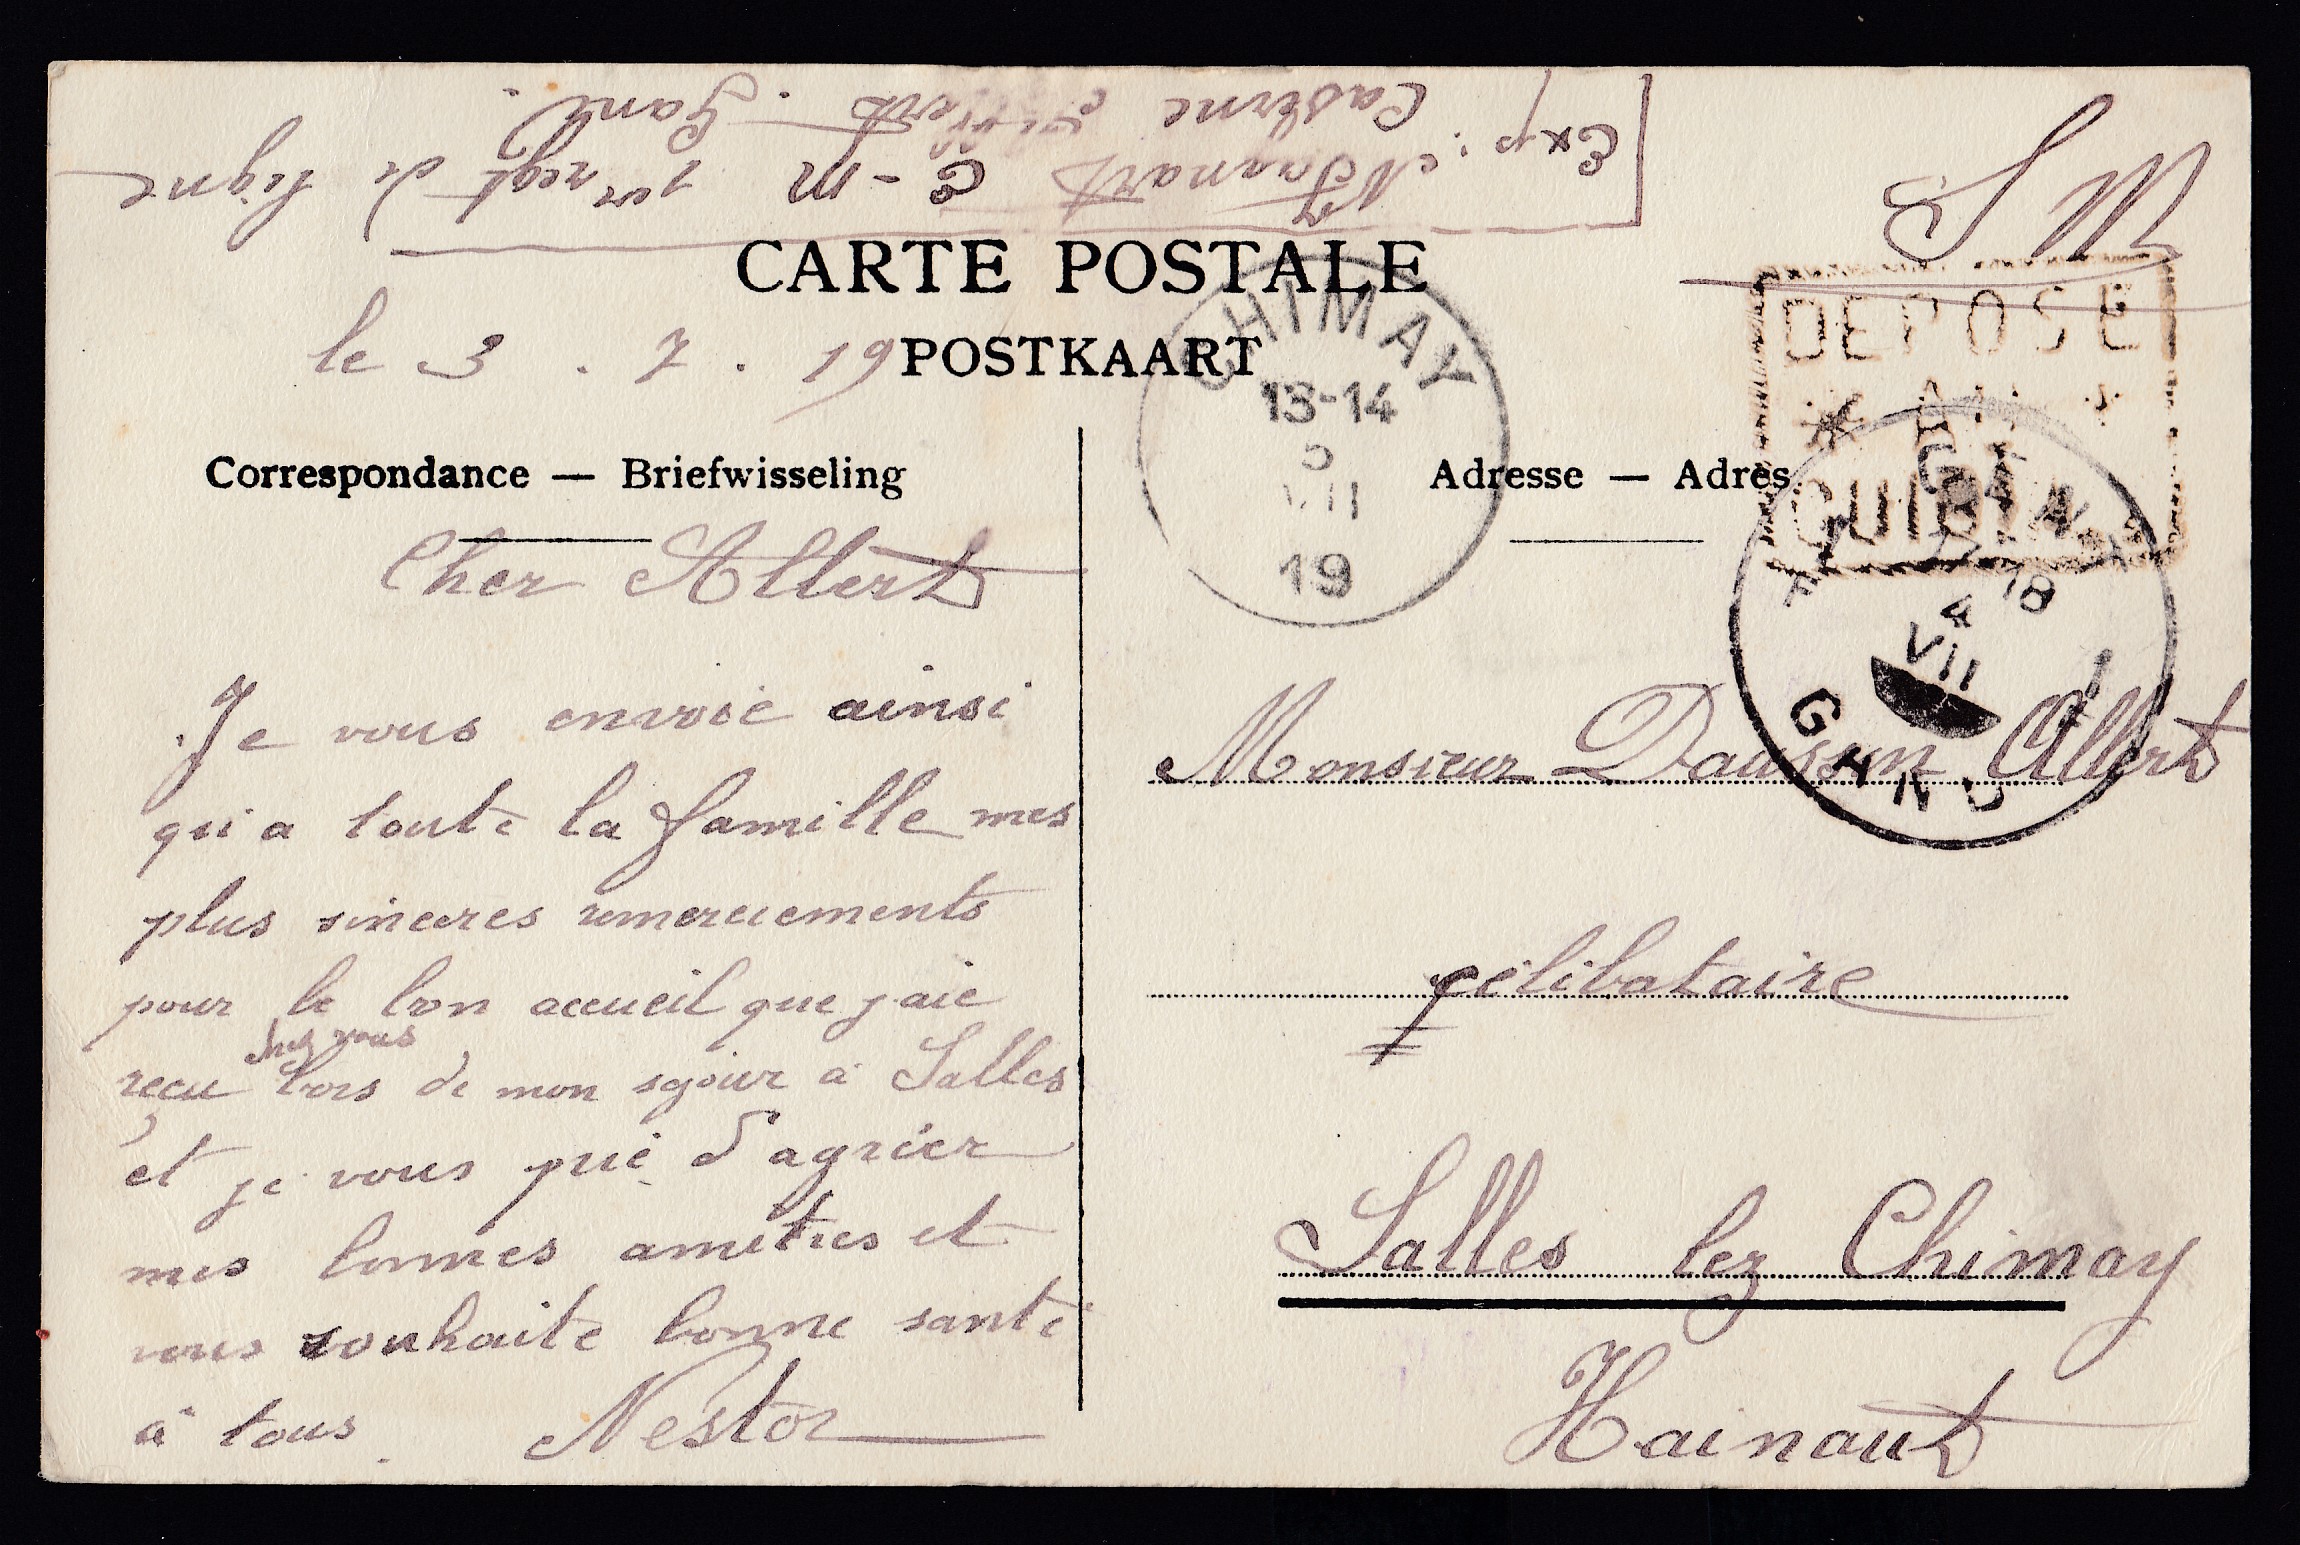 Exp: N Fagnart C-M 1er regt de ligne
Caserne Gand.
S M
CARTE POSTALE
POSTKAART
le 3 . 7 . 19
Correspondance — Briefwisseling
Adresse — Adres
CHIMAY
13-14
5
VII
19
DEPOSE
AU
GUICHET
GENT
18
4
VII
GAND
Cher Albert
Je vous envoie ainsi
qui a toute la famille mes
plus sinceres remerciements
pour le bon accueil que j aie
chez vous
reçu lors de mon sejour a Salles
et je vous prie d'agréer
mes bonnes amitiés et
vous souhaite bonne santé
à tous. Nestor
Monsieur Albert
célibataire
Salles lez Chimay
Hainaut